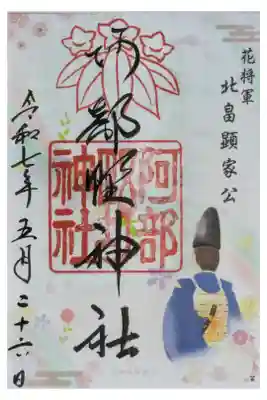 花将軍
北畠顕家公
阿部野神社
阿部
野
神社
令和七年五月二十六日